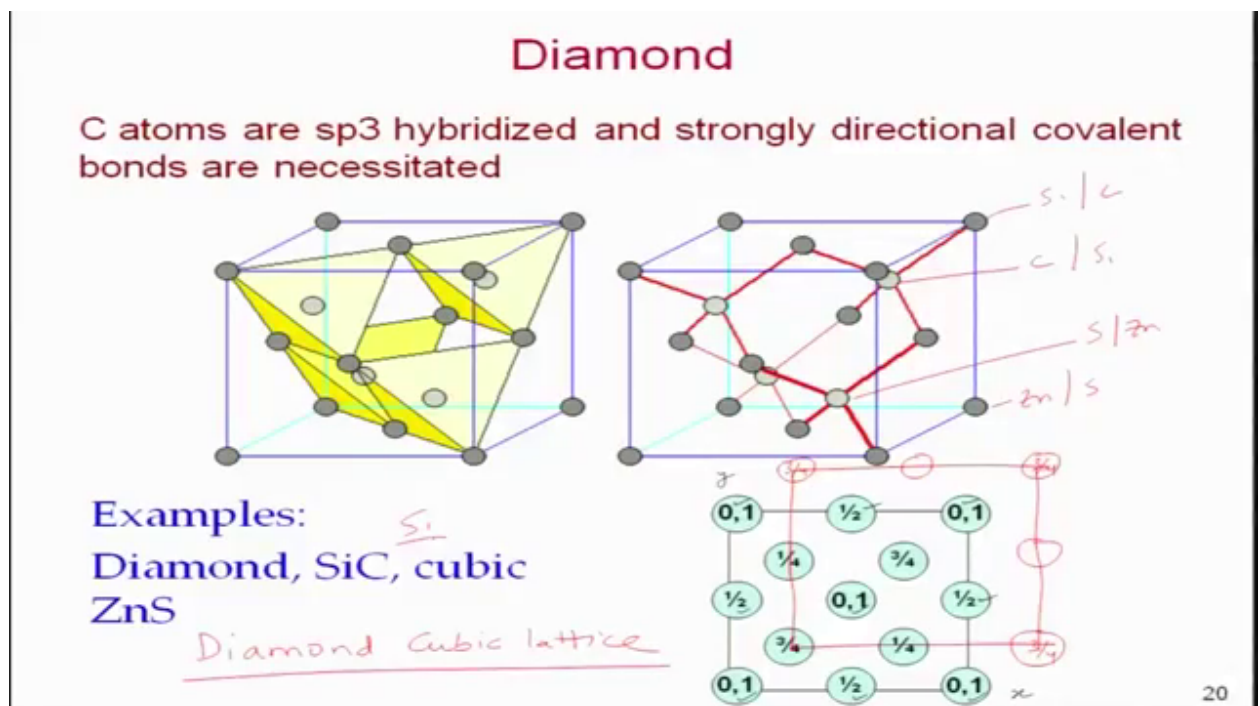 Diamond
C atoms are sp3 hybridized and strongly directional covalent
bonds are necessitated
Si/C
C/Si
S/Zn
Zn/S
Examples:
Si
Diamond, SiC, cubic
ZnS
Diamond Cubic lattice
3/4 3/4
y
0,1 ½ 0,1
¼ ¾
½ 0,1 ½
¾ ¼ 3/4
0,1 ½ 0,1 x
20